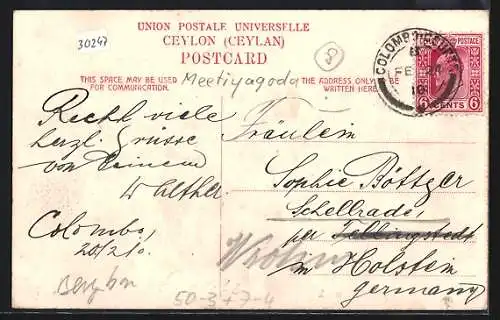 UNION POSTALE UNIVERSELLE
CEYLON (CEYLAN)
POSTCARD
30247
THIS SPACE MAY BE USED
FOR COMMUNICATION.
Meetiyagoda
THE ADDRESS ONLY
WRITTEN HERE
COLOMBO
FE 24
10
POSTAGE
6 CENTS 6
Recht viele
herzl. Grüsse
von Deinem
Walther
Colombo,
20/2 10.
Fräulein
Sophie Böttger
Schellrade,
per Tellingstedt
in Holstein
Germany
50-3+7-4